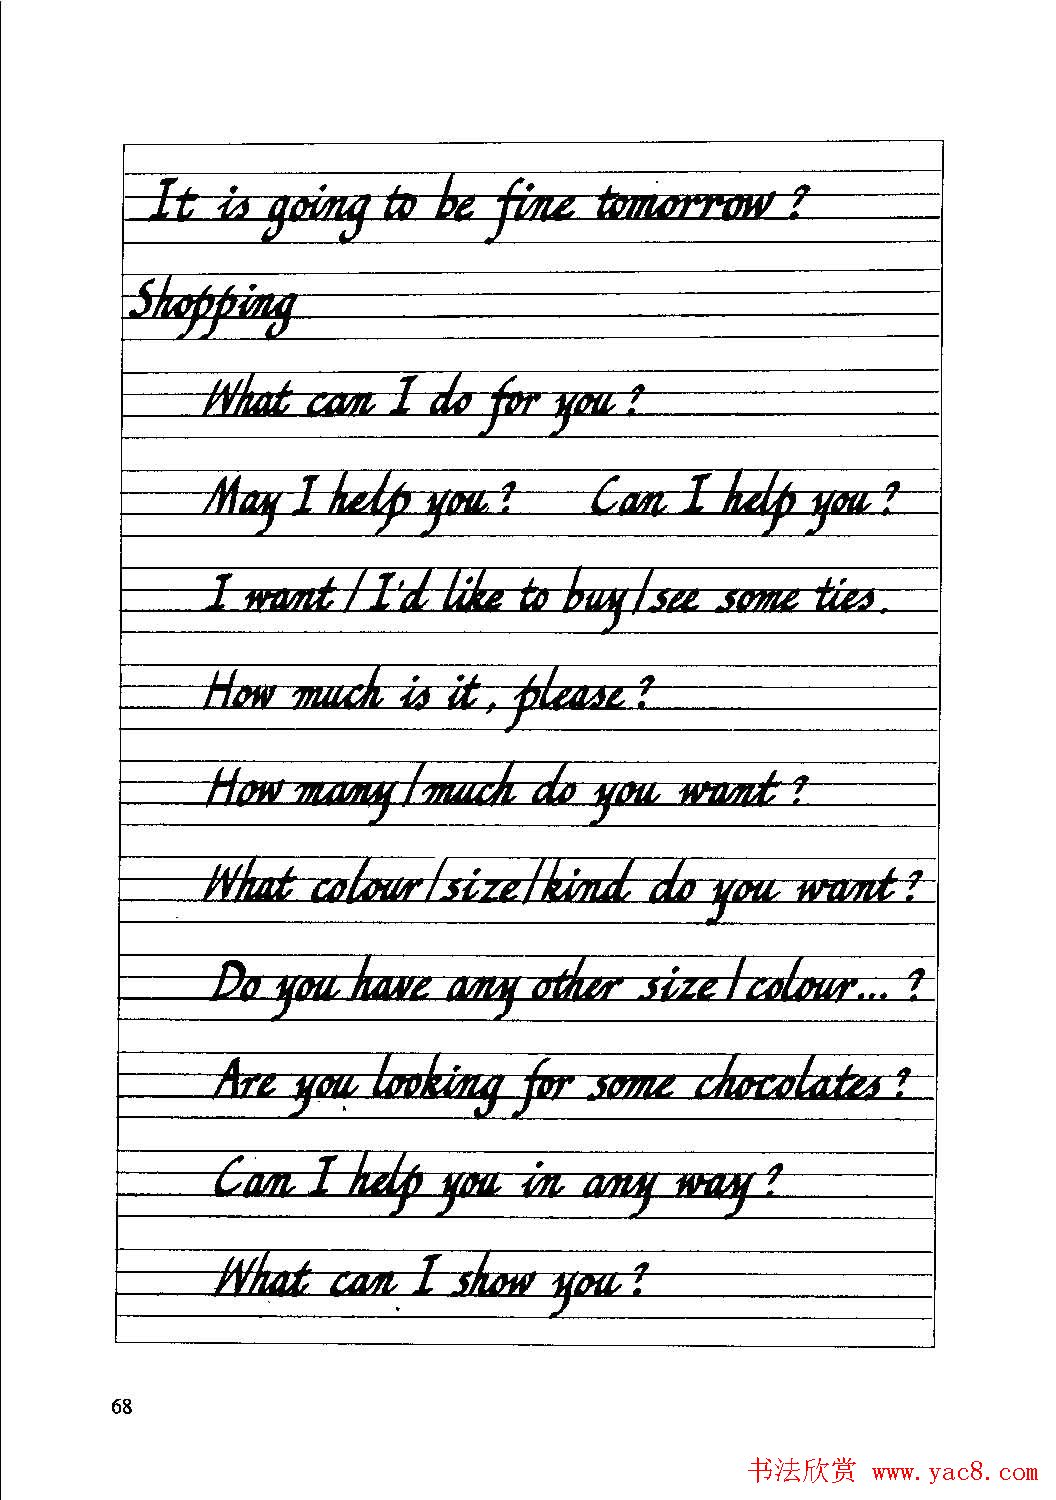 It is going to be fine tomorrow ?
Shopping
What can I do for you ?
May I help you ? Can I help you ?
I want / I'd like to buy / see some ties.
How much is it , please ?
How many / much do you want ?
What colour / size / kind do you want ?
Do you have any other size / colour... ?
Are you looking for some chocolates ?
Can I help you in any way ?
What can I show you ?
68
书法欣赏 www.yac8.com